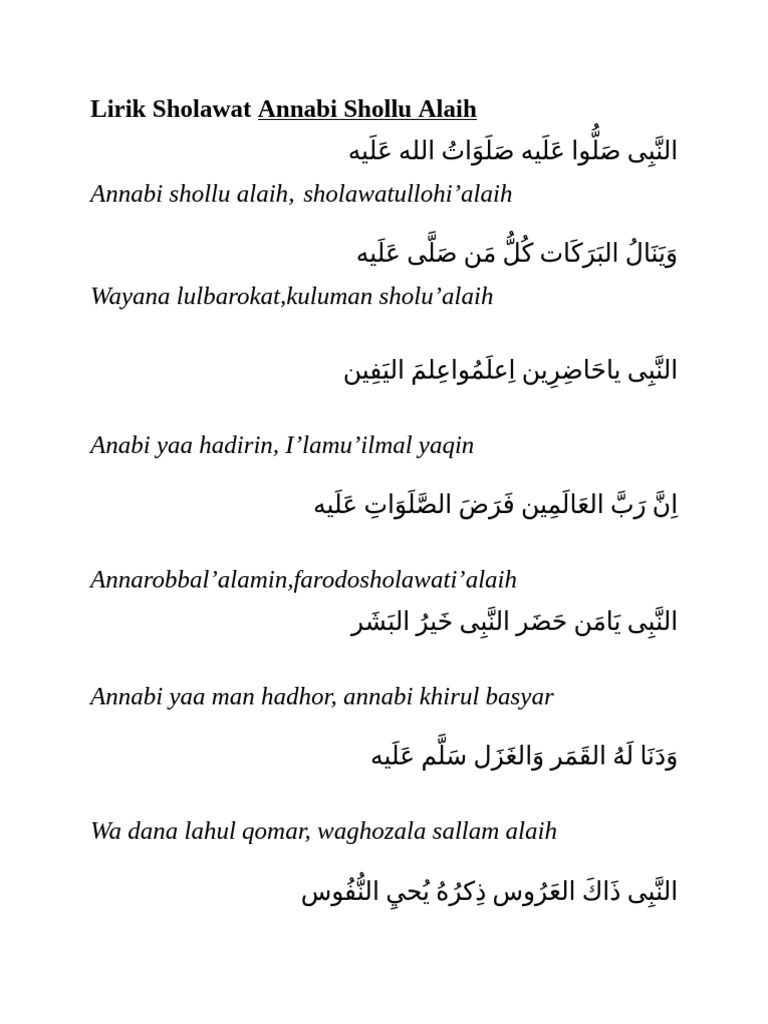 Lirik Sholawat Annabi Shollu Alaih
النَّبِى صَلُّوا عَلَيه صَلَوَاتُ الله عَلَيه
Annabi shollu alaih, sholawatullohi’alaih
وَيَنَالُ البَرَكَات كُلُّ مَن صَلَّى عَلَيه
Wayana lulbarokat,kuluman sholu’alaih
النَّبِى ياحَاضِرِين اِعلَمُواعِلمَ اليَفِين
Anabi yaa hadirin, I’lamu’ilmal yaqin
اِنَّ رَبَّ العَالَمِين فَرَضَ الصَّلَوَاتِ عَلَيه
Annarobbal’alamin,farodosholawati’alaih
النَّبِى يَامَن حَضَر النَّبِى خَيرُ البَشَر
Annabi yaa man hadhor, annabi khirul basyar
وَدَنَا لَهُ القَمَر وَالغَزَل سَلَّم عَلَيه
Wa dana lahul qomar, waghozala sallam alaih
النَّبِى ذَاكَ العَرُوس ذِكرُهُ يُحيِ النُّفُوس